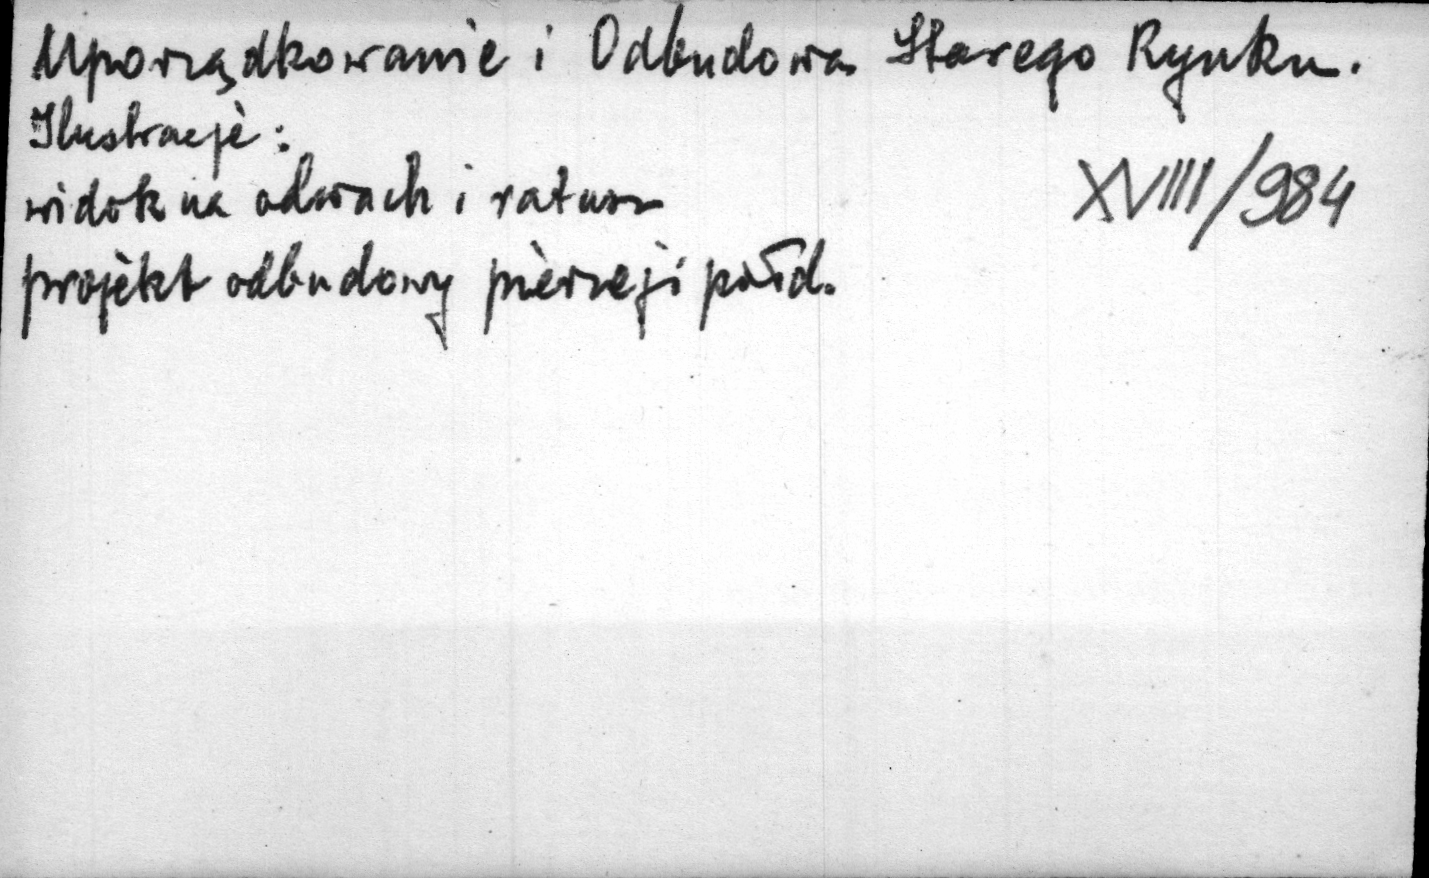 Uporządkowanie i Odbudowa Starego Rynku.
Ilustracje:
XVIII/984
widok na odwach i ratusz
projekt odbudowy pierzeji połd.